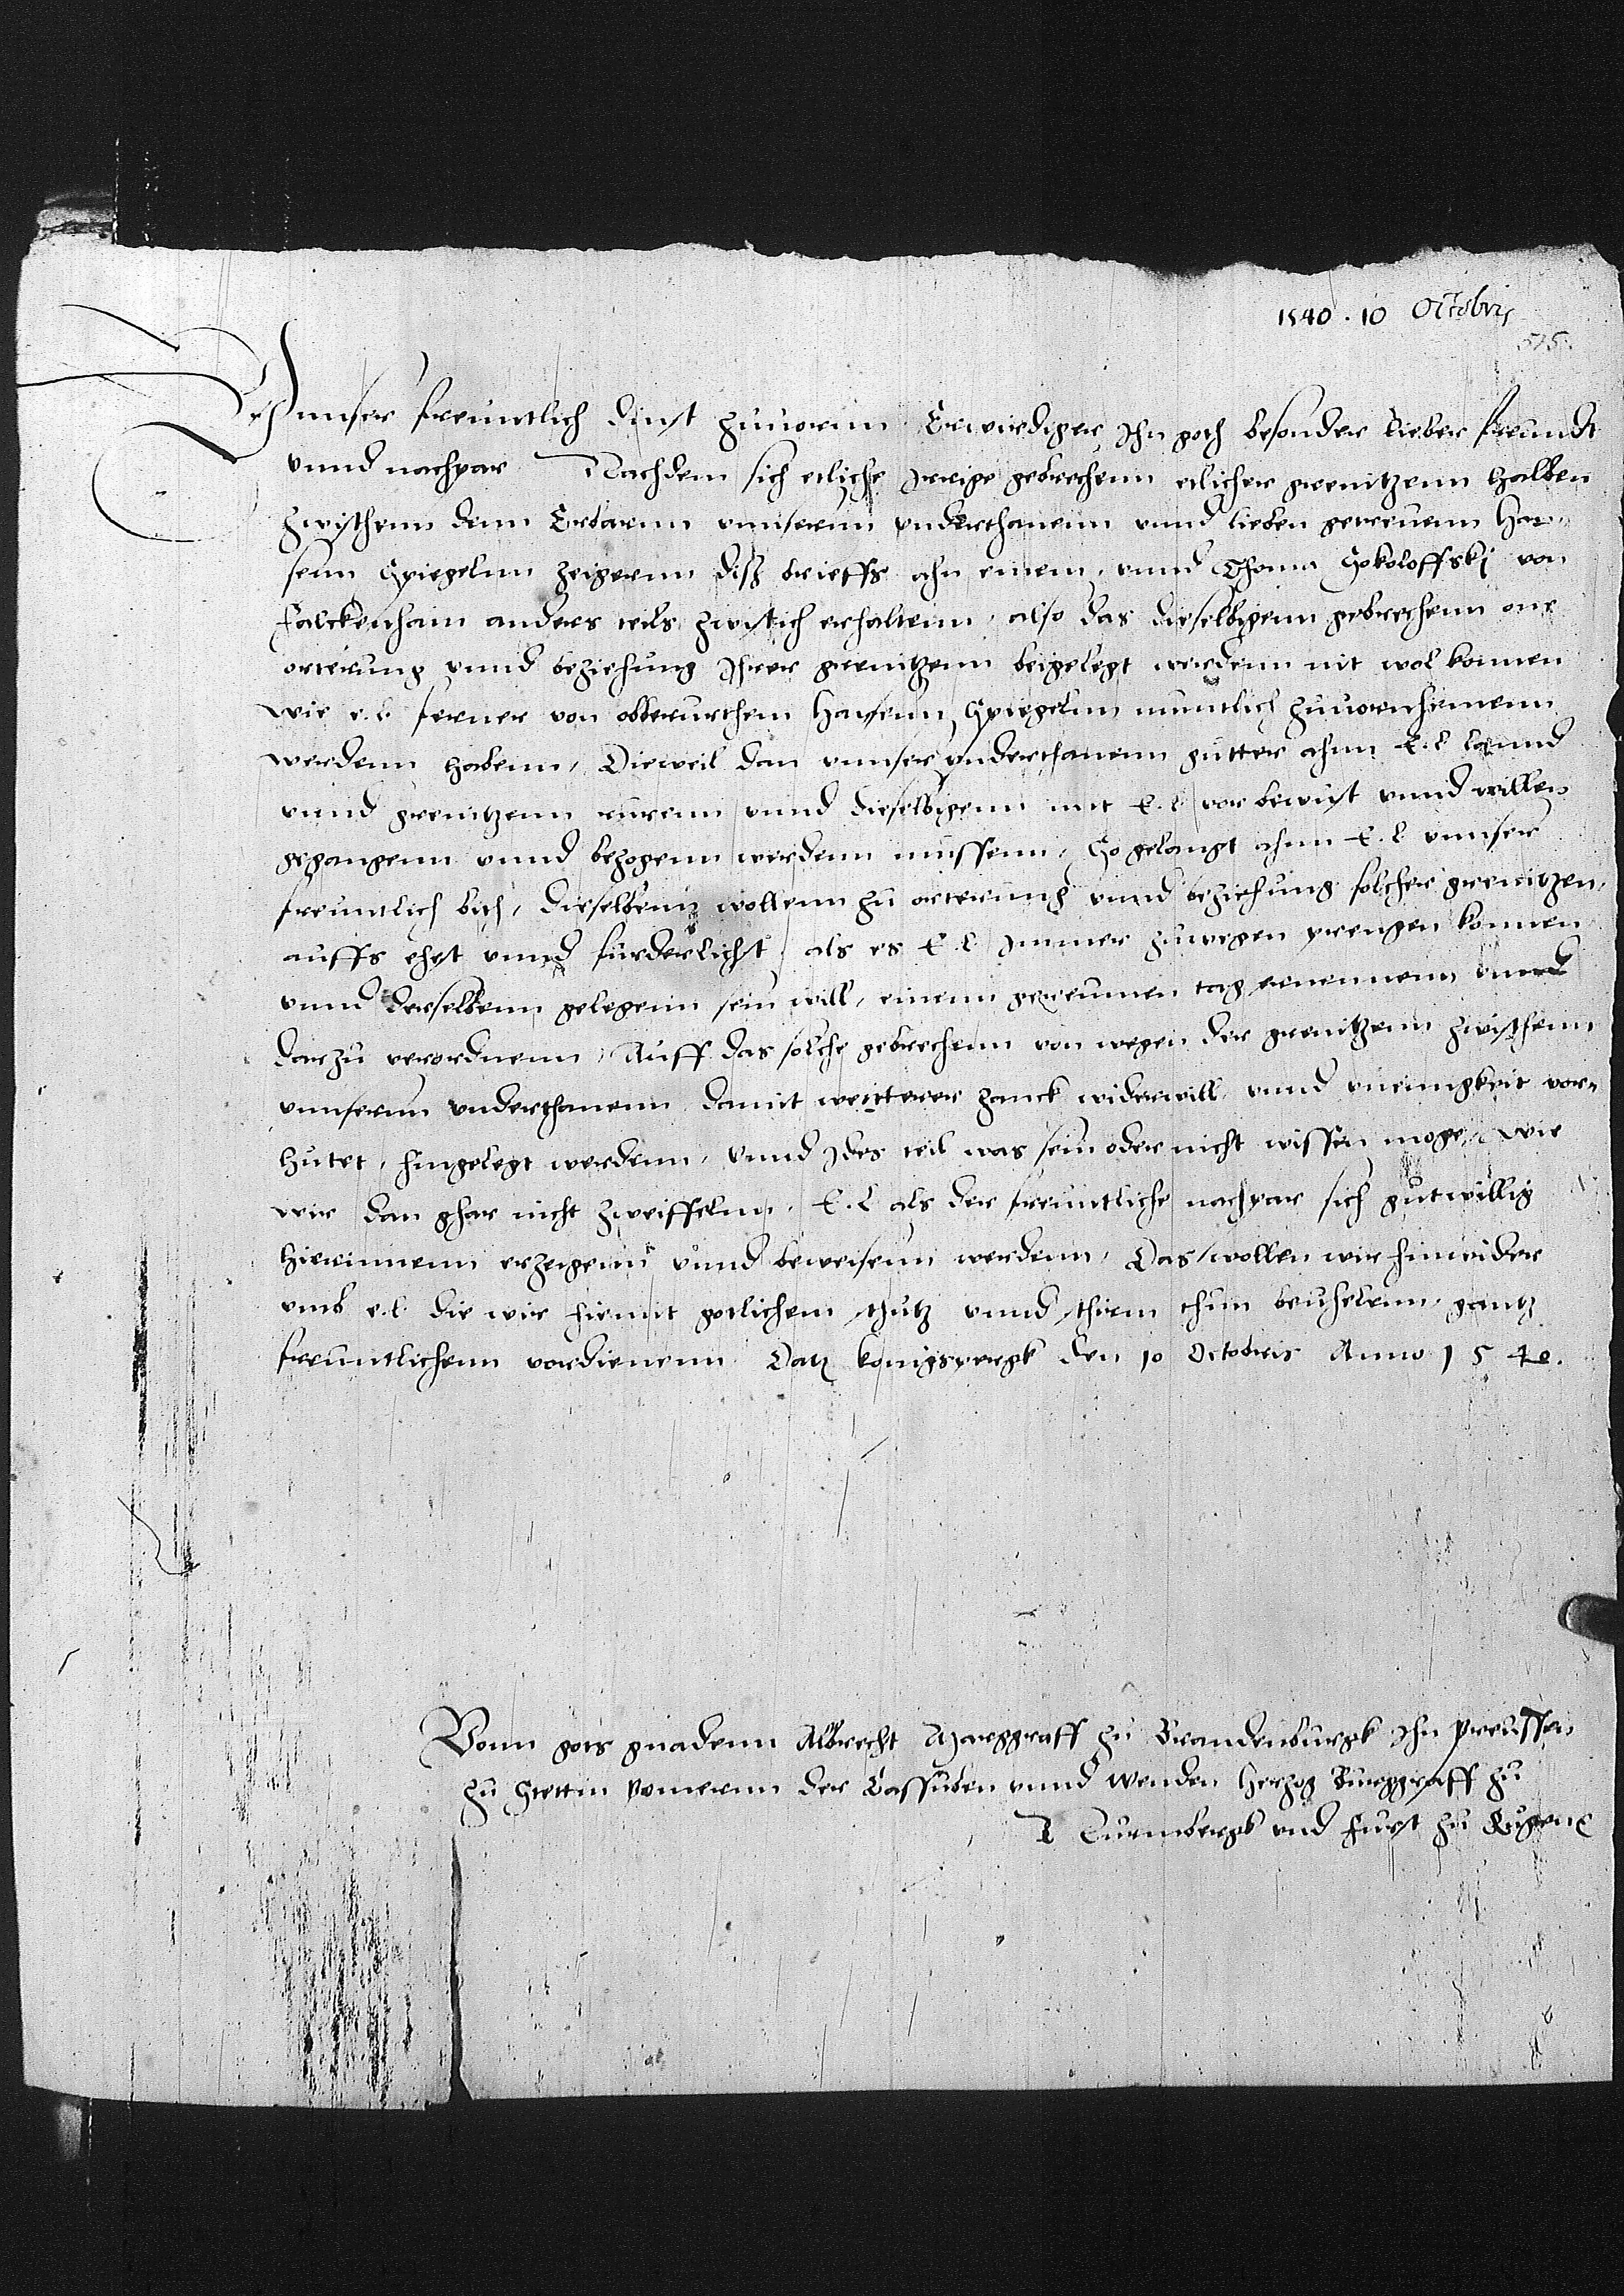 1540 . 10 Octobris
575.
Vnnser freuntlich dinst zuuornn Erwirdiger Jhn goth besonder lieber freundt
vnnd nachpar Nachdem sich etliche Jrrige gebrechenn etlicher grenitzenn halben
zwischenn denn Erbarnn vnnsernn vnderthanenn vnnd lieben getreuenn Han-
senn Spiegelnn zeigernn disz brieffs ahn einem, vnnd Thoma Sokoloffskj von
falckenhain anders teils zwistich erhaltenn, also das dieselbigenn gebrechenn one
orterung vnnd beziehung Jhrer grenitzenn beigelegt werdenn nit wol konnen
wie e.l. ferner von obberurthem Hansenn Spiegelnn muntlich zuuornhemenn
werdenn habenn, Dieweil dan vnnser vnderthanenn gutter ahnn E.l lannd
vnnd grenitzenn rurenn vnnd dieselbigenn mit E.l vorbewust vnnd willen
gegangenn vnnd bezogenn werdenn mussenn, So gelangt ahnn E.l vnnser
freuntlich bith, dieselbenn wollenn zu orterung vnnd beziehung solcher grenitzen,
auffs ehst vnnd furderlichst, als es E.l Jmmer zuwegen prengen konnen
vnnd derselbenn gelegenn sein will, einenn gereumen tag ernennenn vnnd
darzu verordnenn, Auff das solche gebrechenn von wegen der grenitzenn zwischenn
vnnsernn vnderthanenn damit weitterer zanck widerwill vnnd vneinigkeit vor-
hutet, hingelegt werdenn, vnnd Jdes teil was sein oder nicht wissen moge, wie
wir dan ghar nicht zweiffelnn, E.l als der freuntliche nachpar sich gutwillig
hierinnenn erzeigenn vnnd beweisenn werdenn, Das wollen wir hinwider
vmb e.l. die wir hiemit gotlichem schutz vnnd schirm thun beuhelenn, gantz
freuntlichenn vordienenn Datz konigspergk den 10 Octobris Anno 1540.
Vonn gots gnadenn Albrecht Marggraff zu Brandenburgk Jhn preussen
zu Stettin pomernn der Cassuben vnnd Wenden Herzog Burggraff zu
Nurmbergk vnd furst zu Rugenn